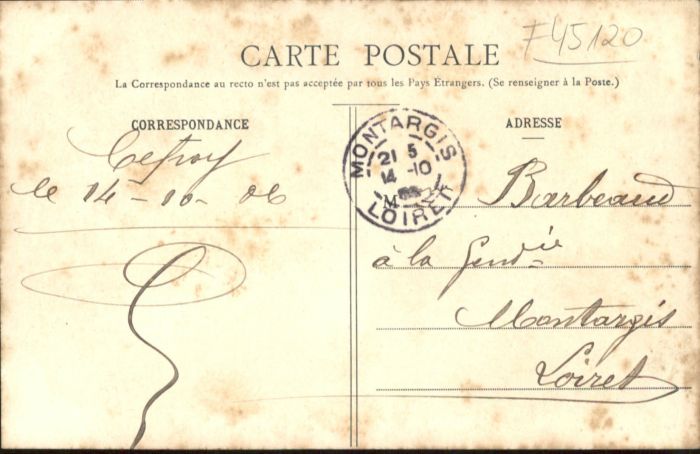 F45120
CARTE POSTALE
La Correspondance au recto n'est pas acceptée par tous les Pays Étrangers. (Se renseigner à la Poste.)
CORRESPONDANCE
le 14-10-06
MONTARGIS
21 5
14-10
LOIRET
ADRESSE
M Barbeaud
à la Gendie
Montargis
Loiret